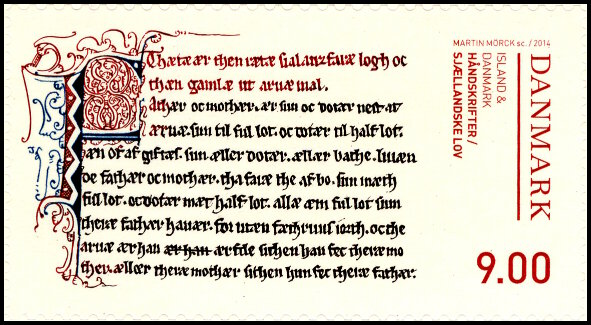 Thætæ ær then rætæ sialanzfaræ logh oc
thæn gamlæ ut aruæ mal.
athær oc mothær. ær sun oc dotær nest at
æruæ. sun til full lot. oc dotær til half lot.
æn of af giftæs. sun æller dotær. ællær bathe. liuæn
de fathær oc mothær. tha faræ the af bo. sun mæth
full lot. oc dotær mæt half lot. allæ æm full lot sum
theræ fathær hauær. for utæn iorth. oc the
aruæ ær han ær han sithen han fec theræ mo
ther. ællær theræ mothær sithen hun fec theræ fathær.
MARTIN MÖRCK sc. / 2014
DANMARK
ISLAND &
DANMARK
HÅNDSKRIFTER /
SJÆLLANDSKE LOV
9.00